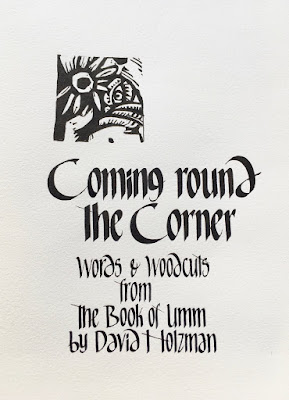 Coming round
the Corner
Words & Woodcuts
from
the Book of Umm
by David Holzman